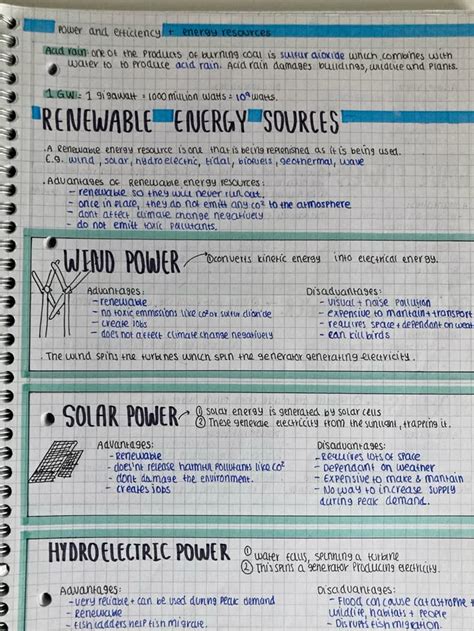 Power and efficiency + energy resources
Acid rain: one of the products of burning coal is sulfur dioxide which combines with
water to to produce acid rain. Acid rain damages buildings, wildlife and plants.
1 GW = 1 gigawatt = 1000 million watts = 10⁹ watts.
RENEWABLE ENERGY SOURCES
. A Renewable energy resource is one that is being replenished as it is being used.
E.g. wind, solar, hydroelectric, tidal, biofuels, geothermal, wave
. Advantages of Renewable energy resources:
- renewable so they will never run out.
- once in place, they do not emitt any CO² to the atmosphere
- dont affect climate change negatively
- do not emitt toxic pollutants.
WIND POWER
① converts kinetic energy into electrical energy.
Advantages:
- renewable
- no toxic emmssions like CO² or sulfur dioxide
- create jobs
- does not affect climate change negatively
Disadvantages:
- visual + noise pollution
- expensive to mantain + transport
- requires space + dependant on weat
- can kill birds
. The wind spins the turbines which spin the generator generating electricity.
SOLAR POWER
① solar energy is generated by solar cells
② These generate electricity from the sunlight, trapping it.
Advantages:
- Renewable
- does'nt release harmful pollutants like CO²
- dont damage the environment.
- creates jobs
Disadvantages:
- Requires lots of space
- Dependant on weather
- Expensive to make & mantain
- No way to increase supply
during peak demand.
HYDROELECTRIC POWER
① water falls, spinning a turbine
② This spins a generator producing electricity.
Advantages:
- very reliable + can be used during peak demand
- Renewable
- fish ladders help fish migrate.
Disadvantages:
- Flood can cause catastrophe +
wildlife, habitats + people
- Disrupts fish migration.